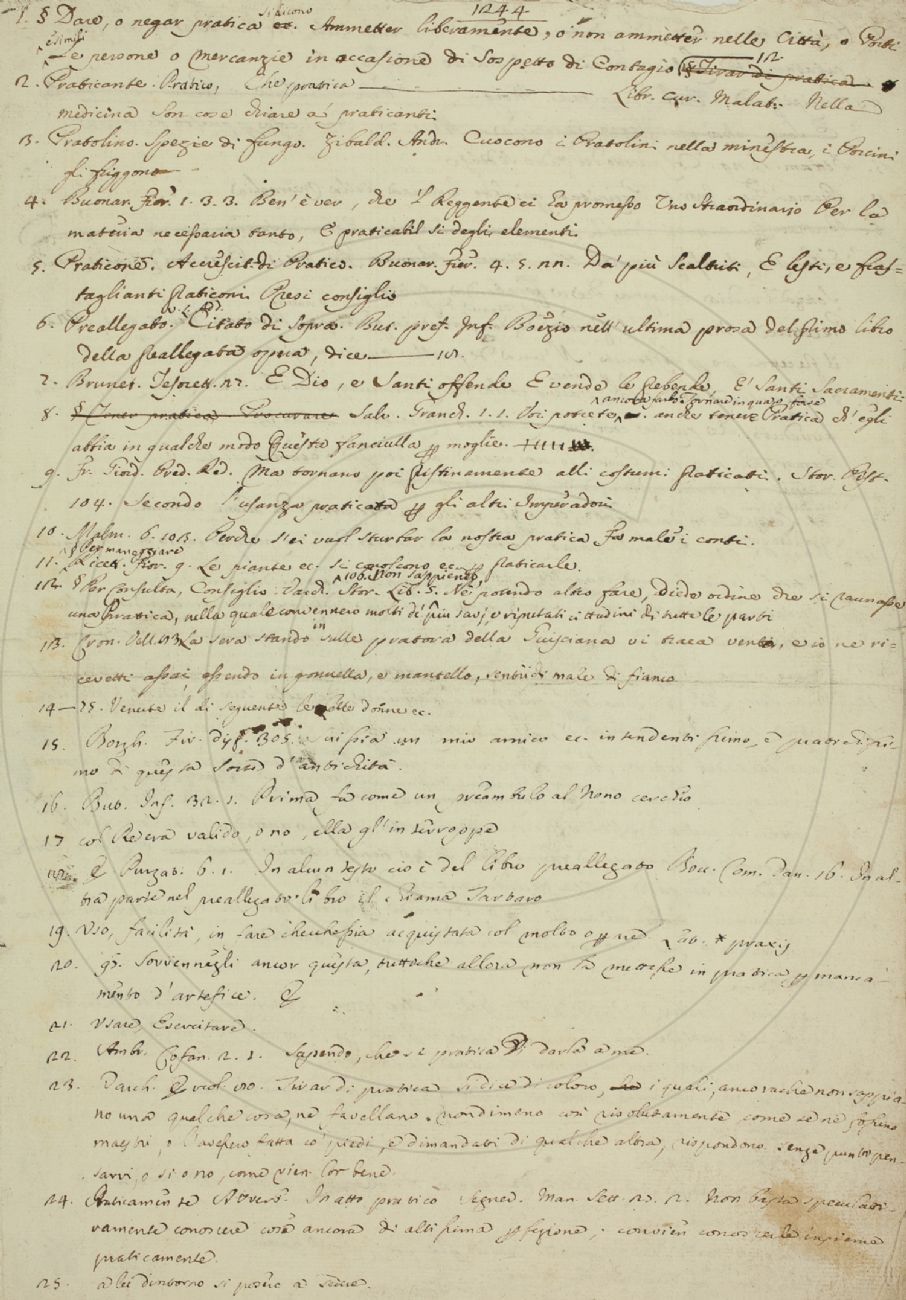 1244
1. § Dare, o negar pratica si dicono ec. Ammetter liberamente, o non ammetter nelle Città, o Porti
e simili Le persone o mercanzie in occasione di Sospetto di Contagio § Tirar di pratica 12
2. Praticante. Pratico, Che pratica Libr. cur. Malatt. Nella
medicina son cose chiare a' praticanti
3. Pratolino. Spezie di fungo. Zibald. Andr. Cuocono i Pratolini nella minestra, i Porcini
gli friggono
4. Buonar. Fier. 1. 3. 3. Ben' è ver, che 'l Reggente ci ha promesso Uno straordinario Per la
materia necessaria tanto, E praticabil si degli elementi
5. Praticone. Accrescit. di Pratico. Buonar. Fier. 4. 5. 22. Da più Scaltriti, E lesti, e fras-
taglianti praticoni Presi consiglio
6. Preallegato. Add. Citato di sopra. But. pref. Inf. Boezio nell' ultima prosa del primo libro
della preallegata opera, dice
7. Brunet. Tesorett. 21. E Dio, e Santi offende E vende le prebende, E' Santi Sacramenti
8. § Tener pratica Procurare Salv. Granch. 1. 1. Voi potete, anche tenere Pratica ch' egli
abbia in qualche modo Questa fanciulla per moglie.
9. Fr. Giord. Pred. Red. Ma tornano poi prestinamente alli costumi praticati. Stor. Pist.
104. Secondo l'usanza praticata per gli altri Imperadori
10. Malm. 6. 103. Perche s'ei vuol sturbar la nostra pratica fa male i conti.
11. § Per maneggiare Ricett. Fior. 9. Le piante ec. si conoscono ec. per praticarle.
12 § Per Consulta, Consiglio. Varch. Stor. Lib. 5. 106. Non sappiendo, Ne potendo altro fare, diede ordine che si raunasse
una Pratica, nella quale convennero molti di più savj, e riputati cittadini di tutte le parti
13. Cron. Vell. 93 La sera stando in sulle pratora della Guisciana vi traea vento, e io ne ri-
cevetti assai, essendo in gonnella, e mantello, sentii di male di fianco
14 — 75. Venute il di seguente le dotte donne ec.
15. Borgh. Fir. disf. 305. cui sia un mio amico ec. intendentissimo, e praticissi-
mo di questa sorta d'antichità.
16. But. Inf. 32. 1. Prima fa come un preambulo al Nono cerchio
17 col Re era valido, o no, ella gl' interroppe
18. E Purgat. 6. 1. In alcun testo cioè del libro preallegato Bocc. Com. Dan. 16. In al-
tra parte nel preallegato libro il chiama Tartaro
19. Uso, facilità, in fare checchessia acquistata col molto operare Lat. * praxis
20. Sovviennegli ancor questa, tuttoche allora non la mettesse in pratica per manca-
mento d'artefice. E
21. Usare, Esercitare.
22. Ambr. Cofan. 2. 1. Sapendo, che si pratica Di darla a me.
23. Varch. Ercol. 90. Tirar di pratica si dice di coloro, i quali, ancorachè non sappia-
no una qualche cosa, ne favellano nondimeno così risolutamente come se ne fossino
maestri, o l'avessero fatta co' piedi, e dimandati di qualche altra, rispondono senza punto pen-
sarvi, o si o no, come vien lor bene.
24. Praticamente Avverb. In atto pratico Segner. Man. Sett. 23. 2. Non basta speculati-
vamente conoscere cosa ancora di altissima perfezione; convien conoscerla insieme
praticamente.
25. a lei dintorno si posero a sedere.